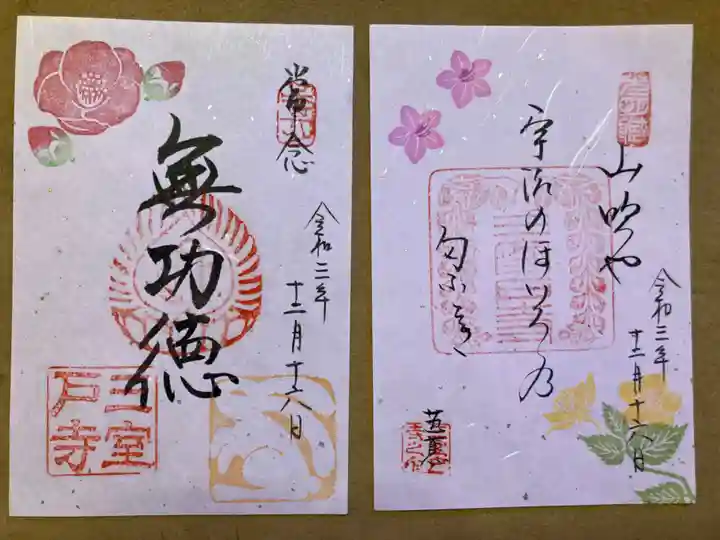 常念
無功徳
令和三年
十二月十六日
三室
戸寺
山吹や
宇治のほいろの
匂ふとき
芭蕉
令和三年
十二月十六日